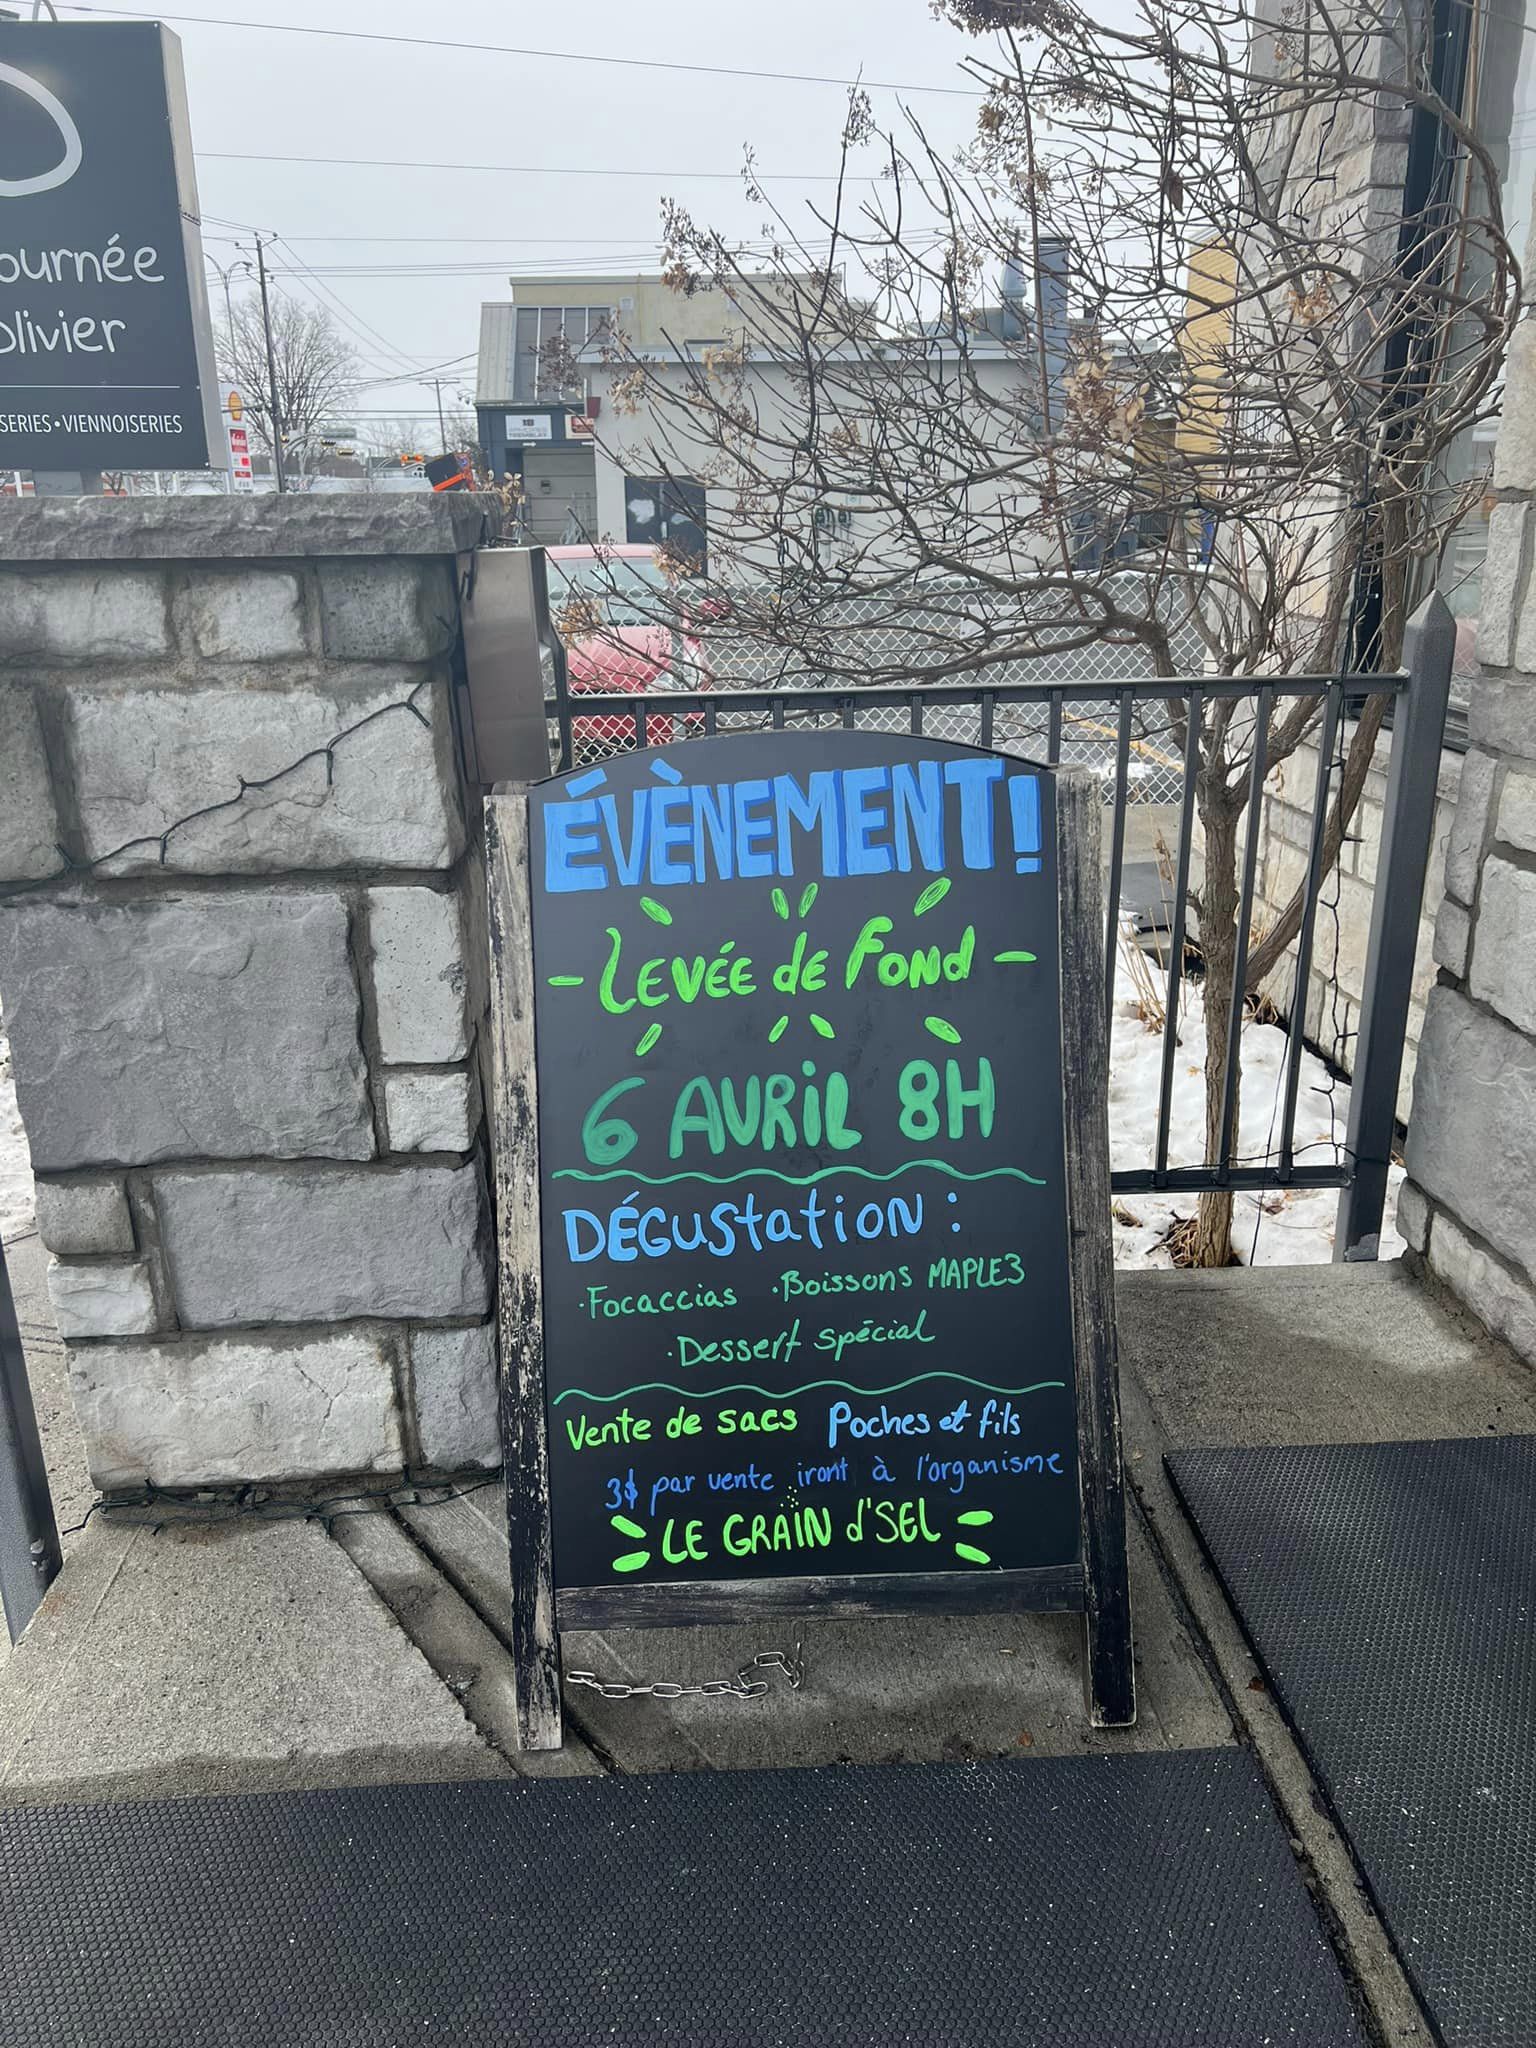 ournée
olivier
SERIES • VIENNOISERIES
ÉVÈNEMENT!
- Levée de Fond -
6 AVRIL 8H
DÉGUStation :
· Focaccias · Boissons MAPLE3
· Dessert spécial
Vente de sacs Poches et fils
3$ par vente iront à l'organisme
LE GRAiN d'SEL